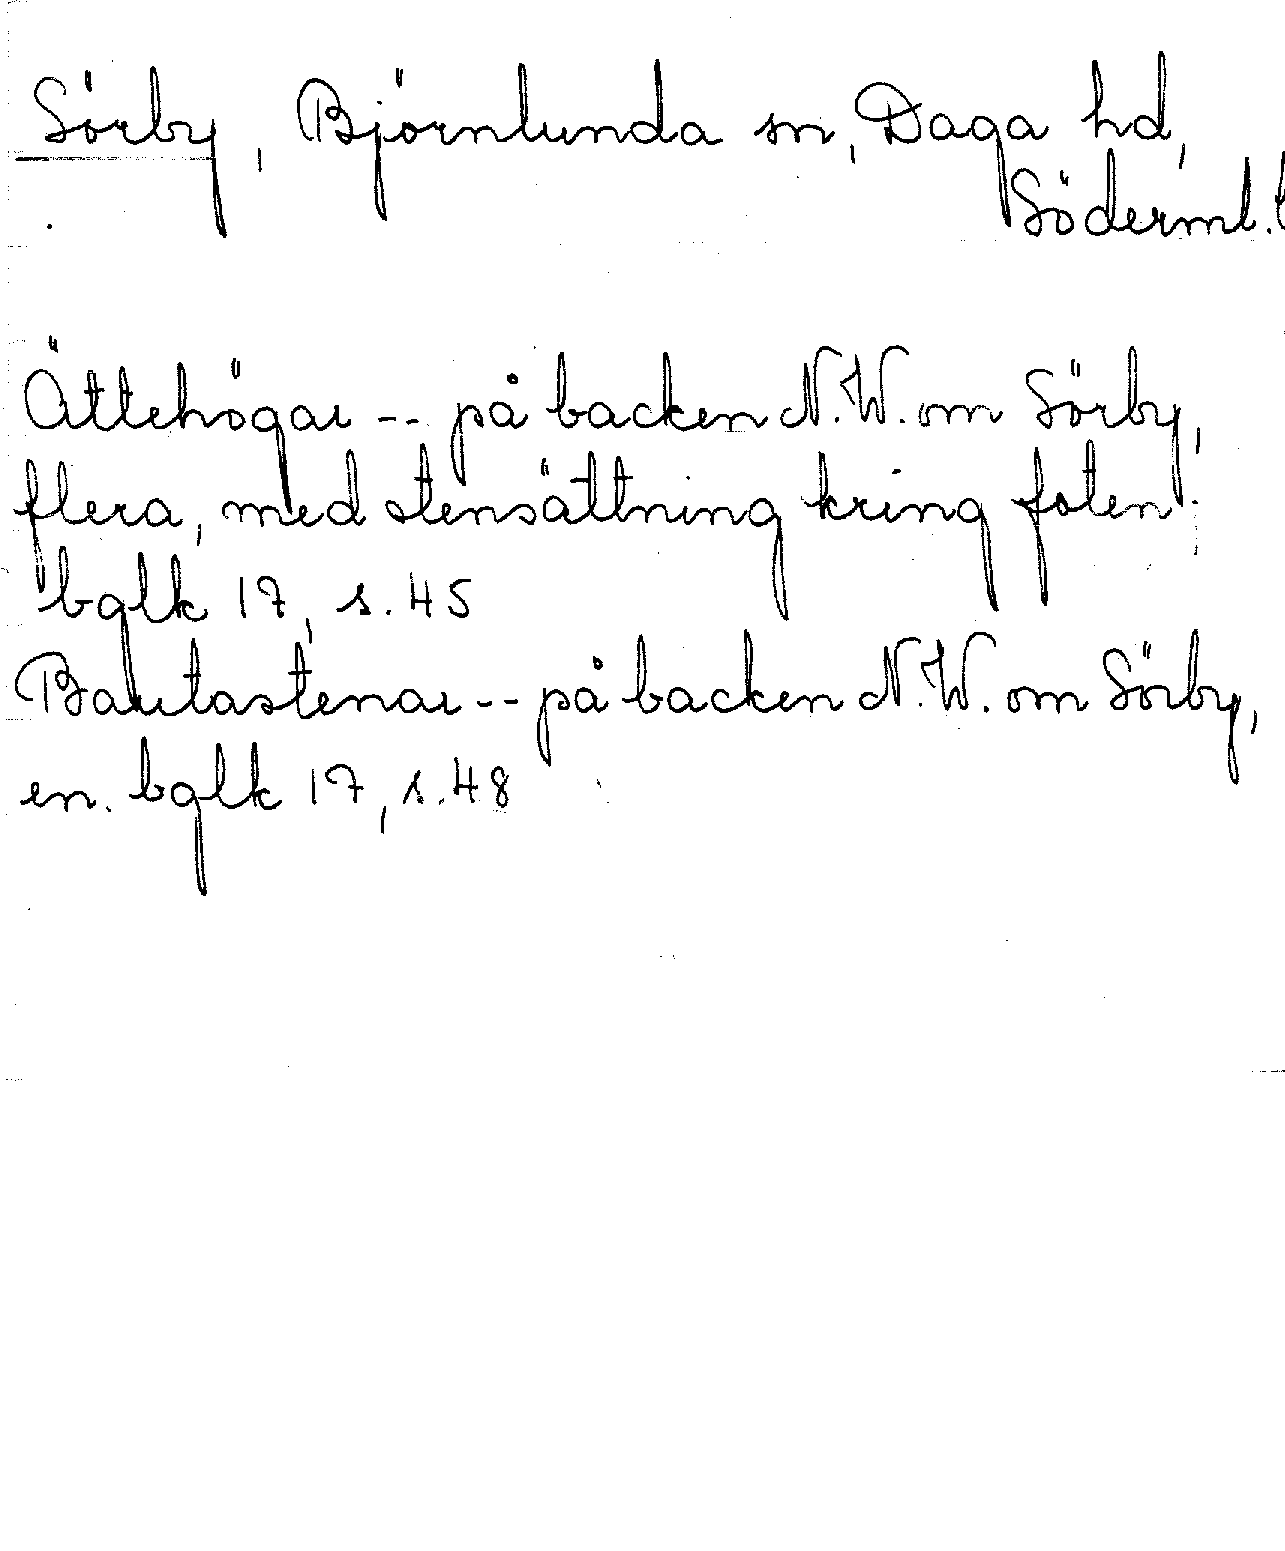 Sörby, Björnlunda sn, Daga hd,
Söderml.
Ättehögar -- på backen N.W. om Sörby,
flera, med stensättning kring foten.
bglk 17, s. 45
Bautastenar -- på backen N.W. om Sörby,
en. bglk 17, s. 48